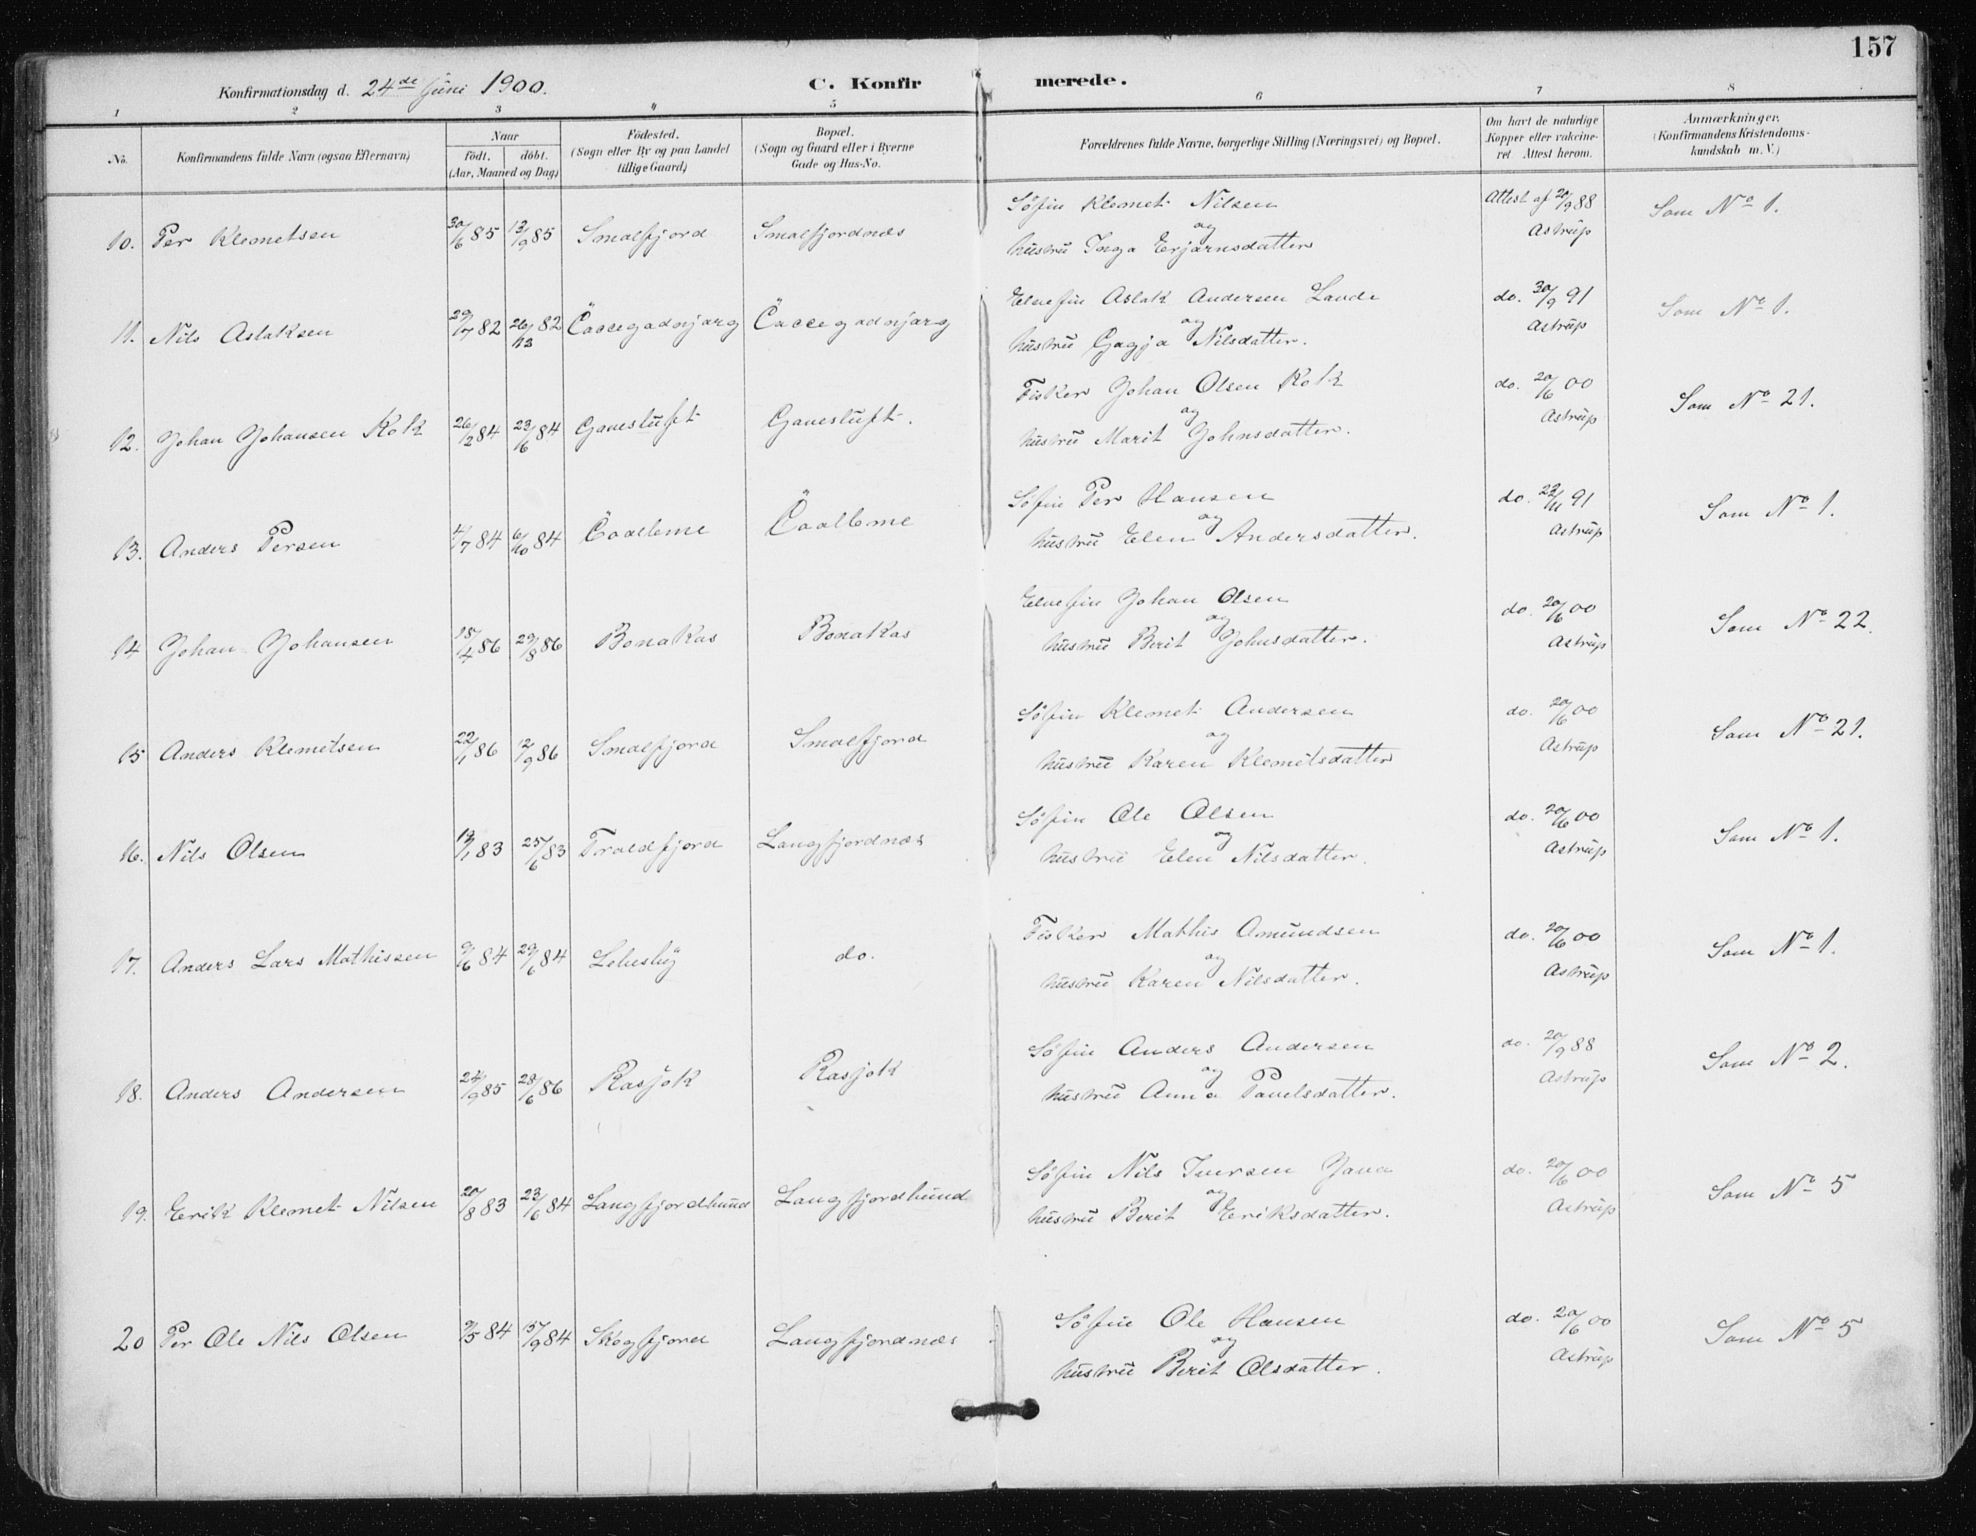 157
Konfirmationsdag d. 24de Juni 1900. C. Konfirmerede.
1 2 3 4 5 6 7 8
No. Konfirmandens fulde Navn (ogsaa Efternavn) Naar födt. döbt. (Aar, Maaned og Dag) Födested. (Sogn eller By og paa Landet tillige Gaard) Bopæl. (Sogn og Gaard eller i Byerne Gade og Hus-No. Forældrenes fulde Navne, borgerlige Stilling (Næringsvei) og Bopæl. Om havt de naturlige Kopper eller vakcineret. Attest herom. Anmærkninger. (Konfirmandens Kristendomskundskab m. V.)
10. Per Klemetsen 30/6 85 13/9 85 Smalfjord Smalfjordnæs Söfin Klemet Nilsen og Attest af 20/9 88 Som No 1.
hustru Inga Erjarnsdatter Astrup
11. Nils Aslaksen 29/7 82 26/12 82 Čaccegadnjarg Čaccegadnjarg Elvefin Aslak Andersen Laude og do. 30/9 91 Som No 1.
hustru Gagja Nilsdatter. Astrup
12. Johan Johansen Kok 26/2 84 23/6 84 Gavesluft Gavesluft. Fisker Johan Olsen Kok og do. 20/6 00 Som No 21.
hustru Marit Johnsdatter. Astrup
13. Anders Persen 4/7 84 6/10 84 Čoalleme Čoalleme Söfin Per Hansen og do. 22/11 91 Som No 1.
hustru Elen Andersdatter. Astrup
14 Johan Johansen 15/4 86 29/8 86 Bonakas Bonakas Elvefin Johan Olsen og do. 20/6 00 Som No 22.
hustru Berit Johnsdatter. Astrup
15 Anders Klemetsen 22/1 86 12/9 86 Smalfjord Smalfjord Söfin Klemet Andersen og do. 20/6 00 Som No 21.
hustru Karen Klemetsdatter Astrup
16. Nils Olsen 19/1 83 25/6 83 Troldfjord Langfjordnæs Söfin Ole Olsen og do. 20/6 00 Som No 1.
hustru Elen Nilsdatter. Astrup
17. Anders Lars Mathissen 9/6 84 29/6 84 Lebesby do. Fisker Mathis Amundsen og do. 20/6 00 Som No 1.
hustru Karen Nilsdatter. Astrup
18. Anders Andersen 24/9 85 28/6 86 Rasjok Rasjok Söfin Anders Andersen og do. 20/9 88 Som No 2.
hustru Anna Pavelsdatter. Astrup
19. Erik Klemet Nilsen 20/8 83 23/6 84 Langfjordbund Langfjordbund Söfin Nils Iversen Java og do. 20/6 00 Som No 5
hustru Berit Eriksdatter. Astrup
20 Per Ole Nils Olsen 9/5 84 15/9 84 Skogfjord Langfjordnæs Söfin Ole Hansen og do. 20/6 00 Som No 5
hustru Berit Olsdatter. Astrup